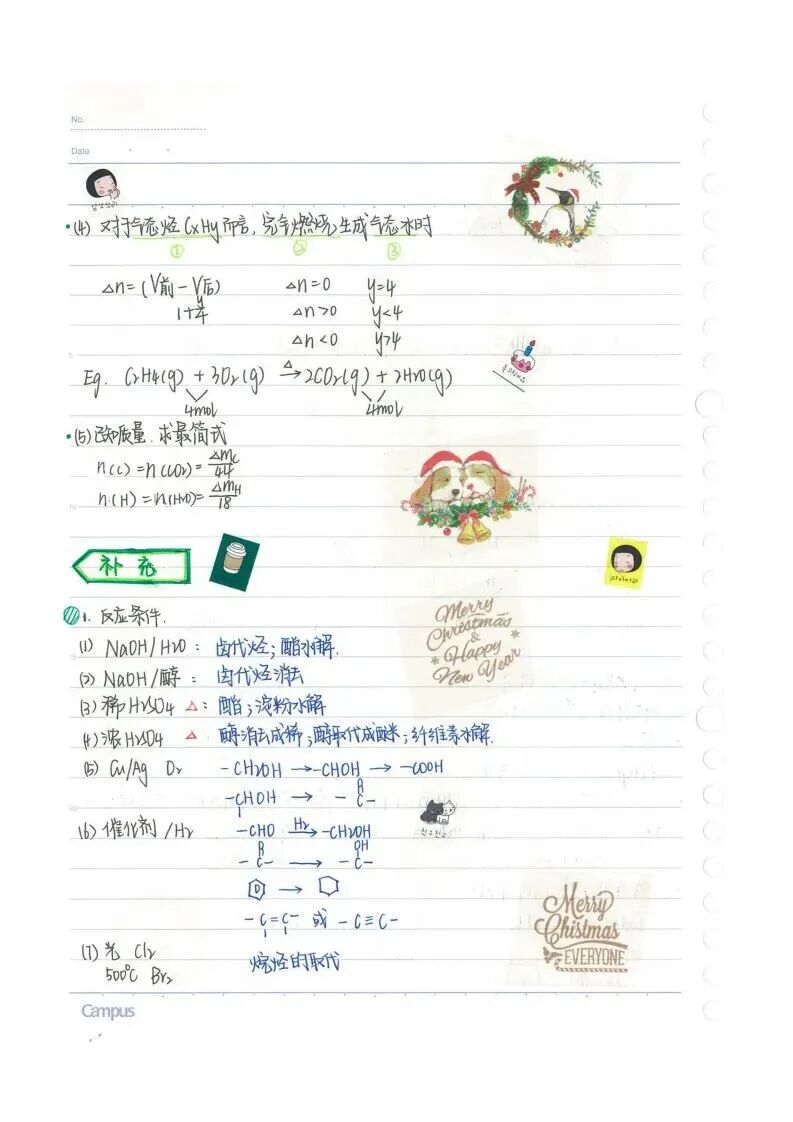 No.
Date
(4) 对于气态烃CxHy而言,完全燃烧,生成气态水时
① ② ③
△n=(V前-V后) △n=0 y=4
1+y/4 △n>0 y<4
△n<0 y>4
Eg. C2H4(g) + 3O2(g) →△ 2CO2(g) + 2H2O(g)
4mol 4mol
(5)已知质量.求最简式
n(C)=n(CO2)=△mC/44
n(H)=n(H2O)=△mH/18
补充
1. 反应条件.
(1) NaOH/H2O: 卤代烃;酯水解.
(2) NaOH/醇: 卤代烃消去
(3) 稀H2SO4 △: 酯;淀粉水解
(4) 浓H2SO4 △ 醇消去成烯;醇取代成醚;纤维素水解.
(5) Cu/Ag O2 -CH2OH → -CHOH → -COOH
-CHOH → -C-
(6) 催化剂/H2 -CHO H2→ -CH2OH
OH
-C- → -C-
→
-C=C- 或 -C≡C-
(7) 光 Cl2 烷烃的取代
500℃ Br2
Merry
Christmas
&
Happy
New Year
Merry
Chistmas
EVERYONE
Campus